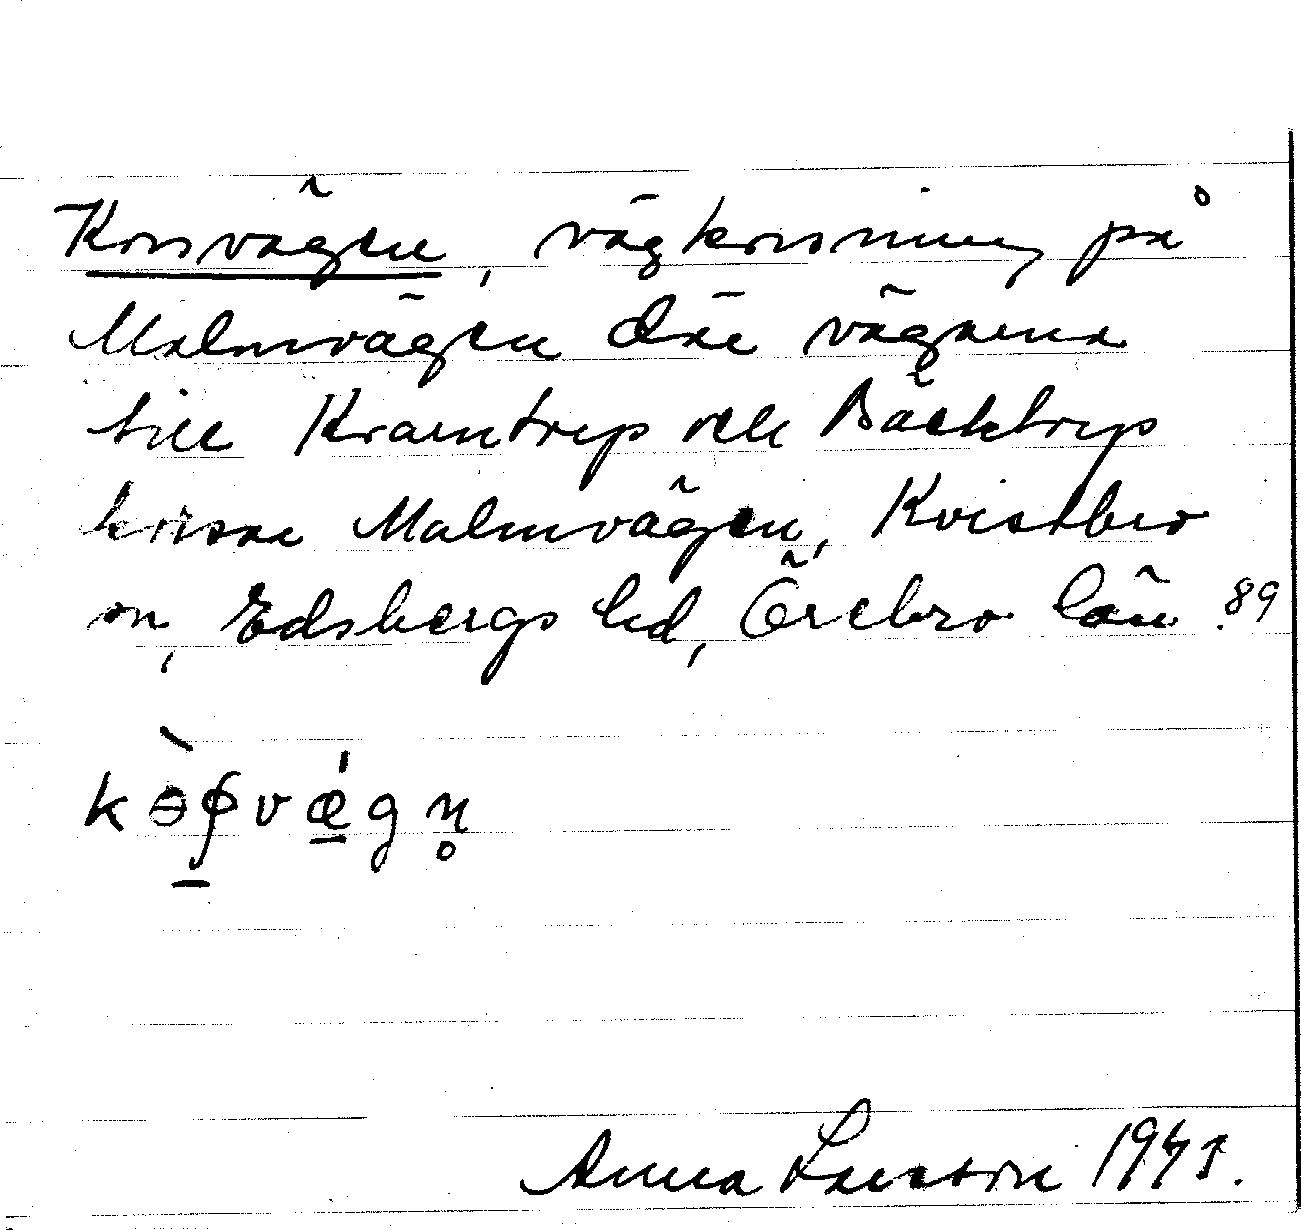 Korsvägen, vägkorsning på
Malmvägen där vägarna
till Kramtorp och Bäcktorp
korsar Malmvägen, Kvistbro
sn, Edsbergs hd, Örebro län. 89
Anna Larsson 1945.